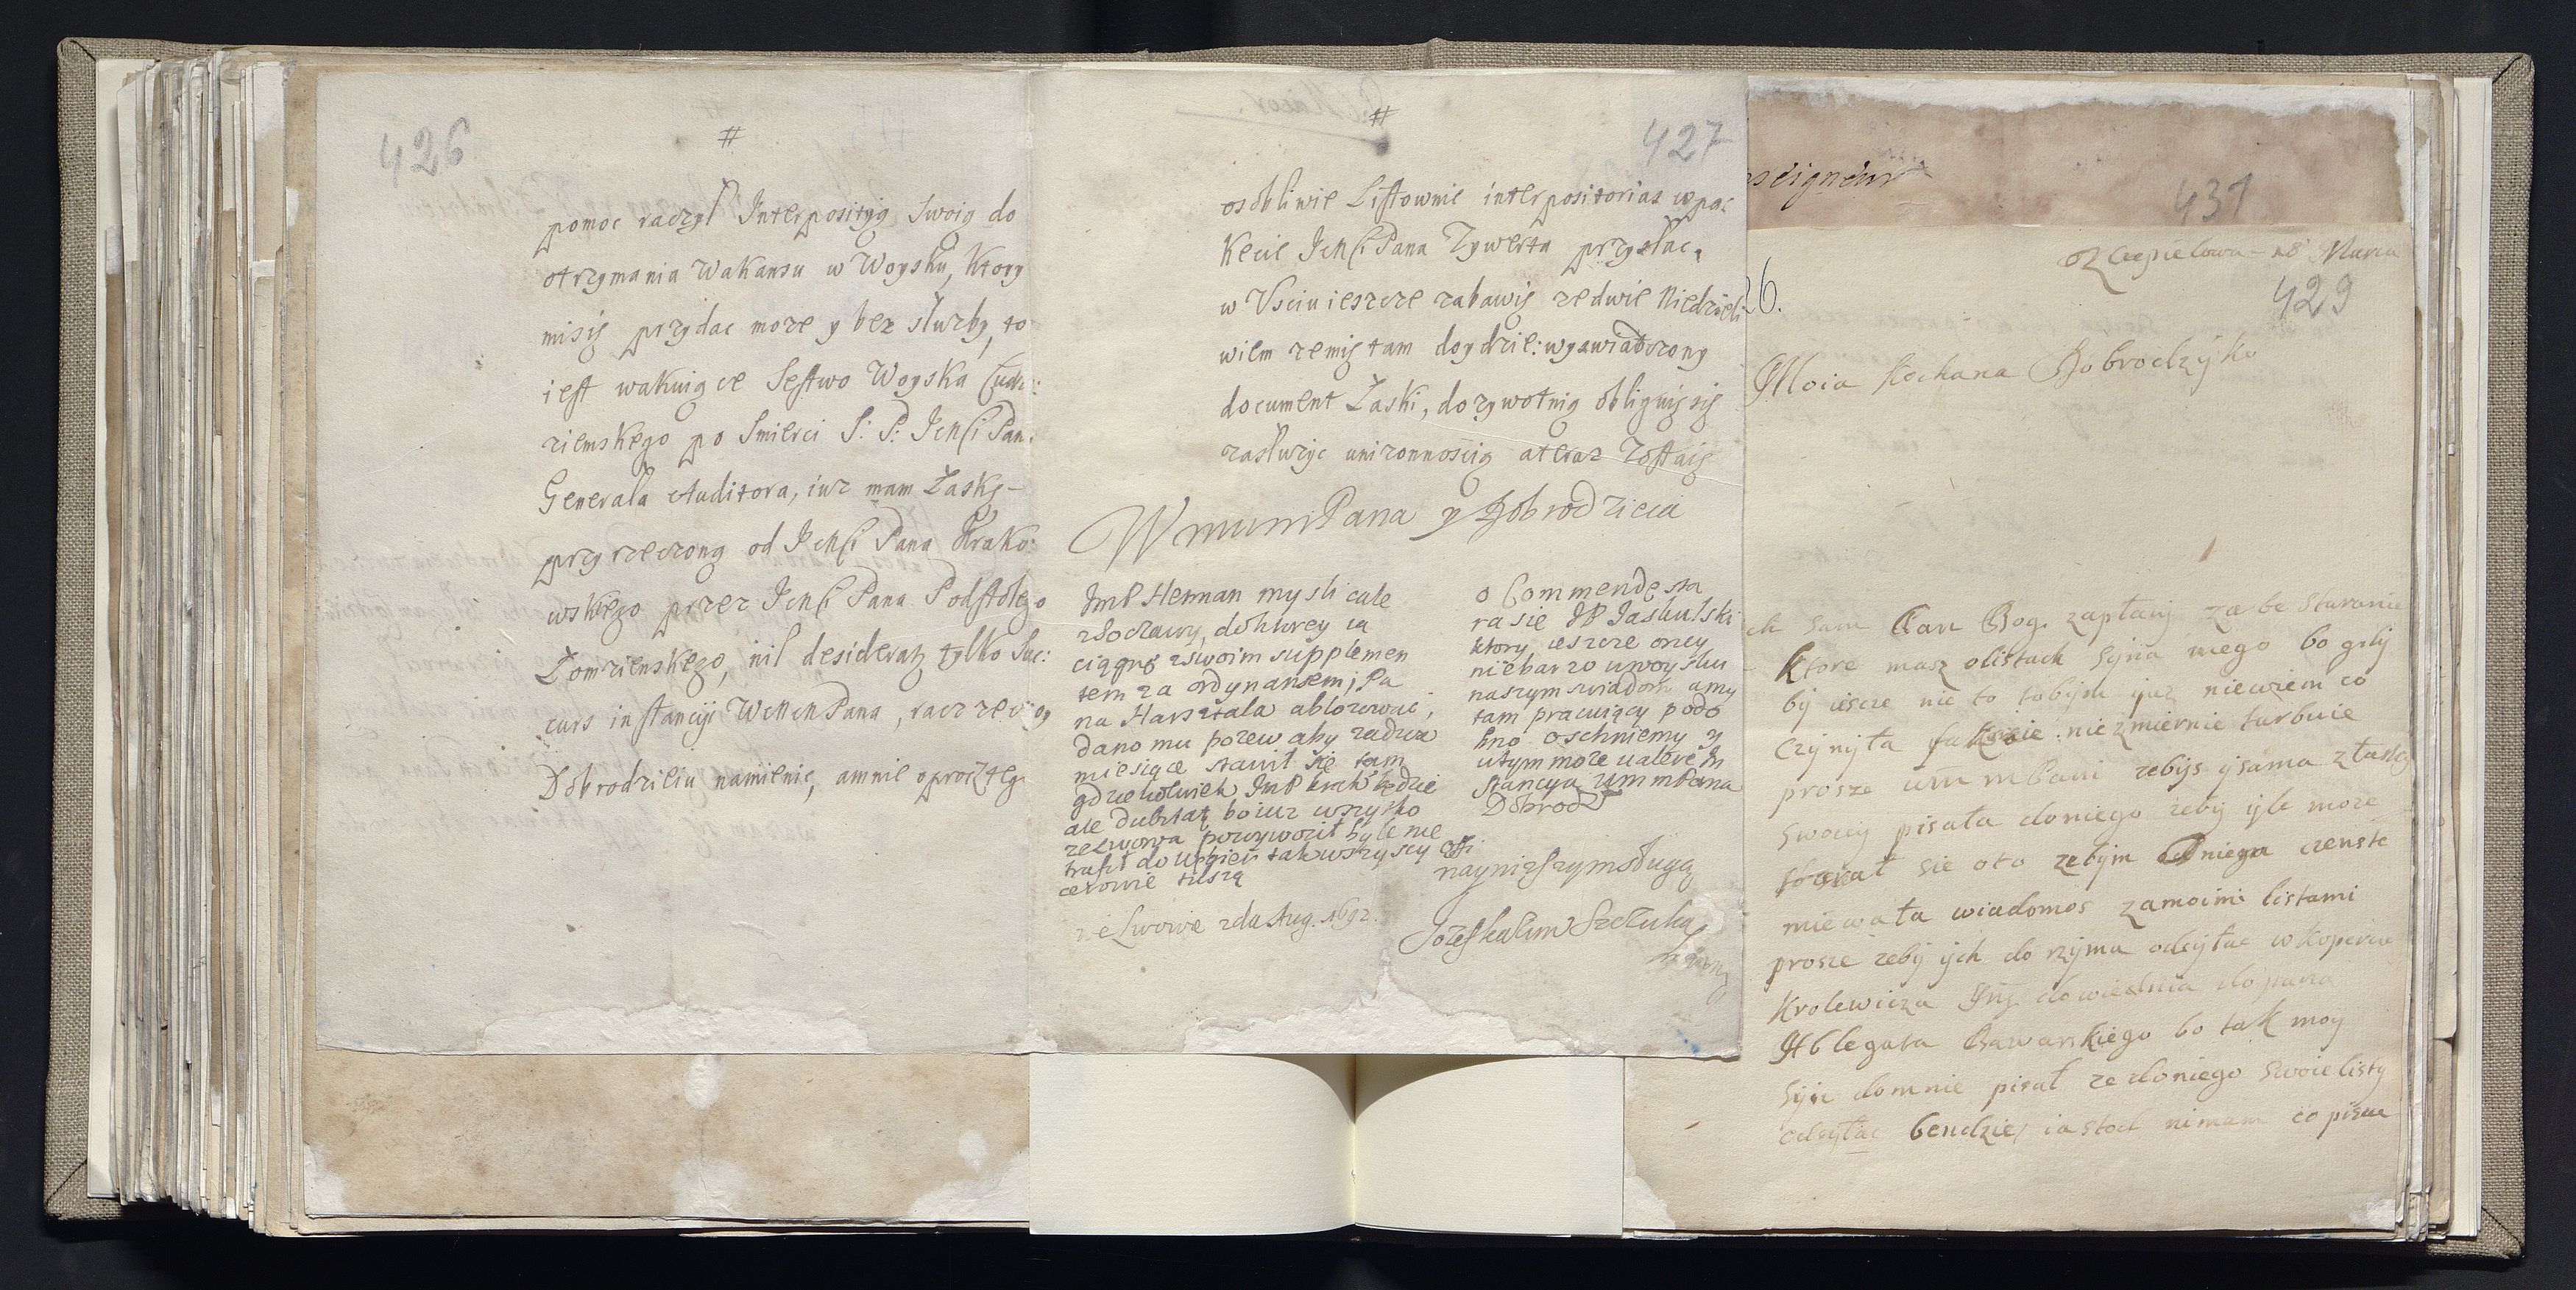 426
#
pomoc raczył Interpositją Swoią do
otrzymania Wakansu w Woysku, ktory
misię przydac moze y bez służby, to
iest wakuiące Sestwo Woyska Cudzo:
ziemskego po Smierci S: P: Pana
Generała Auditora, iuz mam Łaskę
przyrzeczoną od Pana Krako:
wskiego przez Pana Podstolego
Łomzienskego, nil desideratz tylko Suc:
curs instancyi Pana, racz
Dobrodzieiu namienic, amnie oprocz tego
#
427
osobliwie Listownie interpositorias wpac
kecie Pana Tywerta przysłac,
w Usciu ieszcze zabawię zedwie Niedzieli
wiem zemię tam doydzie: wyswiadczony
document Łaski, dozywotnią obliguię się
zasłuzyc unizonnoscią ateraz zostaię
WmmmPana y Dobrodzieia
ImP Hetman mysli cale
zSoczawy, doktorey ia
ciągnę zswoim supplemen
tem za ordynansem; Pa
na Harsztala ablozować,
dano mu pozew aby zadwa
miesiące stawił się tam
gdziekolwiek ImP krak będzie
ale dubitat boiuz wszytko
zeLwowa powywoził byle nie
trafił do Węgier tak wszyscy offi:
cerowie tuszą
o Commendę sta
ra się JP Jasbulski
ktory ieszcze oney
niebarzo uwoysku
naszym swiadom amy
tam pracuiący podo
bno oschniemy y
utym moze valere In
stancya WmmPana
Dobrod
nayniższym Sługą
we Lwowie 2da Aug. 1692.
Jozef Szczuka
seigneur
431
26.
Maria
429
Moia Kochana Dobrodzyko
sam Pan Bog zapłaŋ za te Staranie
ktore masz olistach Syna mego bo gdy
by iescze nie to tobym juz niewiem co
czynyła niezmiernie turbuie
prosze WmmPani zebys ysama złaski
Swoiey pisała doniego zeby yle moze
starał sie oto zebym odniego czenste
miewała wiadomos zamoimi listami
prosze zeby ych do rzyma odsyłac wkopercie
Krolewicza Im dowiednia dopana
Ablegata Bawarskiego bo tak moy
Syn domnie pisał ze doniego Swoie listy
odsyłac bendzie, iastod nimam co pisac